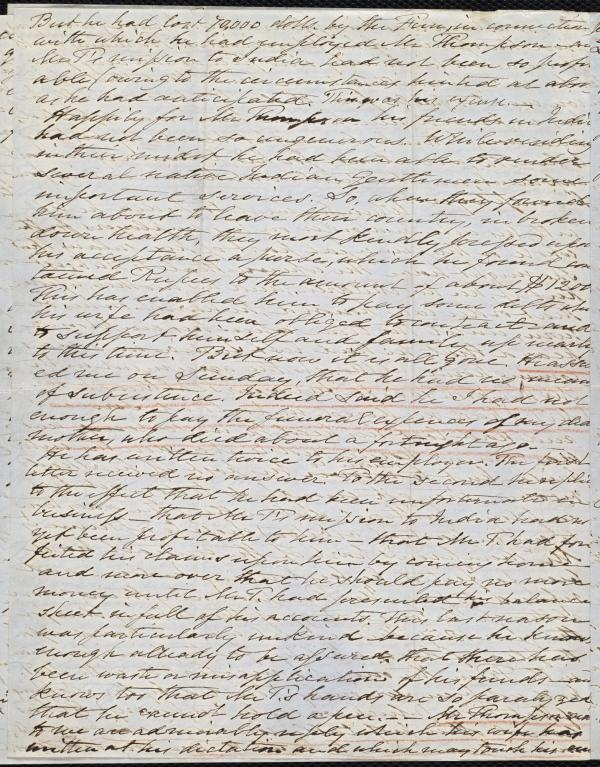 But he had lost 70,000 dolls by the Firm in connection
with which he had employed Mr Thompson and
Mr T's mission to India had not been so profit
able (owing to the circumstances hinted at above
as he had anticipated. This was his excuse.
Happily for Mr Thompson his friends in India
had not been so ungenerous. While residing
in their midst he had been able to render
several native Indian gentlemen some
important services. So, when they found
him about to leave their country, in broken
down health, they most kindly pressed upon
his acceptance a purse, which he found con
tained Rupees to the amount of about $1200
This has enabled him to pay some debts which
his wife had been obliged to contract and
to support himself and family up nearly
to this time. But now it is all gone. He assur
ed me on Sunday, that he had no means
of subsistence. Indeed said he I had not
enough to pay the funeral expences of my dear
mother, who died about a fortnight ago.
He has written twice to his employer. The first
letter received no answer. To the second he replied
to the effect that he had been unfortunate in
business - that Mr T's mission to India had not
yet been profitable to him - that Mr. T. had for
feited his claims upon him by coming home -
and more over that he should pay no more
money until Mr T. had presented a balance
sheet in full of his accounts. This last reason
was particularly unkind because he knows
enough already to be assured, that there has
been waste or misapplication of his funds - and
knows too that Mr T's hands are so paralyzed
that he cannot hold a pen. - Mr Thompson read
to me an admirable reply which his wife has
written at his dictation and which may touch his